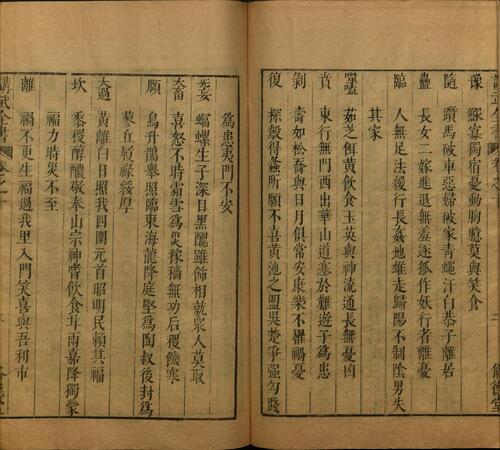 豫 鰥寡獨宿憂動胸臆莫與笑食
隨 躓馬破車惡婦破家青蠅汙白恭子離居
蠱 長女二嫁進退無羞逐狐作妖行者離憂
臨 人無足法緩行長姦地雄走歸陽不制陰男失
其家
噬嗑 茹芝餌黃飲食玉英與神流通長無憂凶
賁 東行無門西出華山道塞於難遊子為患
剝 壽如松喬與日月俱常安康樂不罹禍憂
復 探鷇得蠡所願不喜黃池之盟吳楚爭強勾踐
為患夷門不安
无妄 蝸螺生子深目黑醜雖飾相就眾人莫取
大畜 喜怒不時霜雪為災稼穡無功后稷饑寒
頤 烏升鵲舉照臨東海龍降庭堅為陶叔後封為
蓼丘履祿綏厚
大過 黃離白日照我四國元首昭明民賴其福
坎 黍稷醇醲敬奉山宗神嗜飲食甘雨嘉降獨蒙
福力時災不至
離 禍不更生福過我里入門笑喜與吾利市